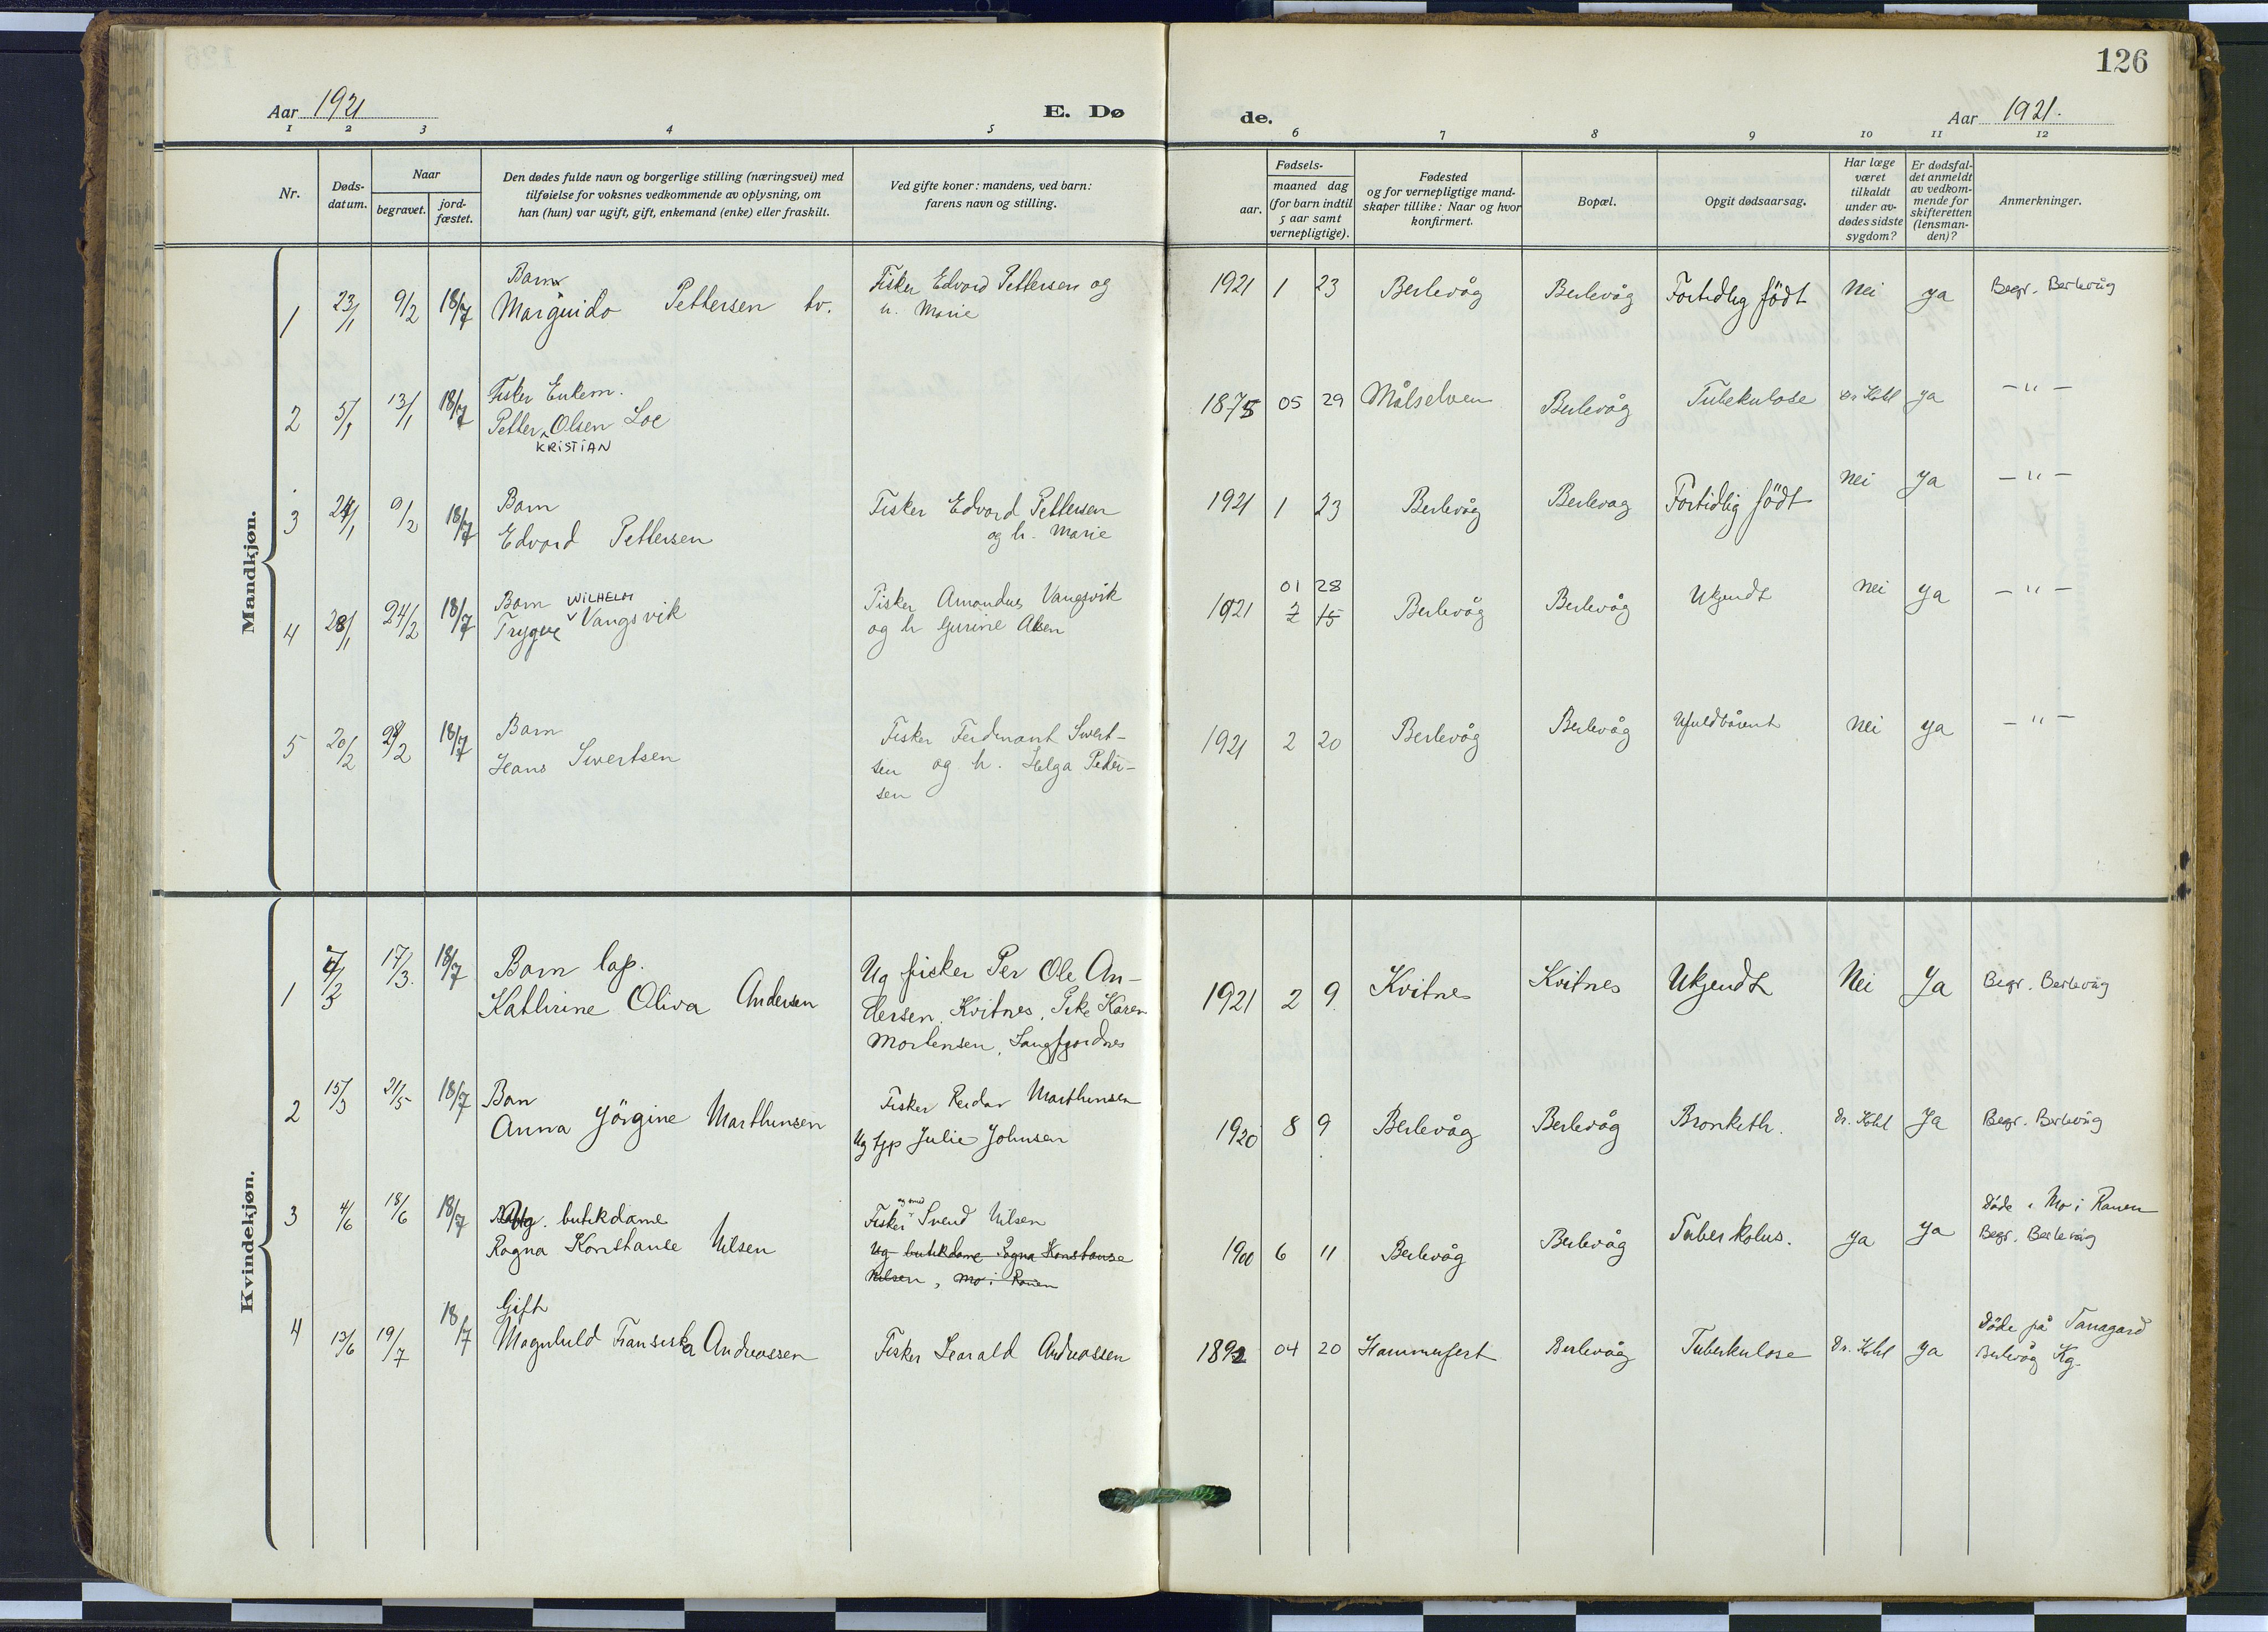 126
Aar 1921
E. Døde.
Aar 1921.
1 2 3 4 5 6 7 8 9 10 11 12
Nr.
Dødsdatum.
Naar
begravet.
jordfæstet.
Den dødes fulde navn og borgerlige stilling (næringsvei) med
tilføielse for voksnes vedkommende av oplysning, om
han (hun) var ugift, gift, enkemand (enke) eller fraskilt.
Ved gifte koner: mandens, ved barn:
farens navn og stilling.
Fødsels-
aar.
maaned dag
(for barn indtil
5 aar samt
vernepligtige).
Fødested
og for vernepligtige mand-
skaper tillike: Naar og hvor
konfirmert.
Bopæl.
Opgit dødsaarsag.
Har læge
været
tilkaldt
under av-
dødes sidste
sygdom?
Er dødsfal-
det anmeldt
av vedkom-
mende for
skifteretten
(lensman-
den)?
Anmerkninger.
Mandkjøn.
1 23/1 9/2 18/7 Barn
Marguido Pettersen tv.
Fisker Edvard Pettersen og
h. Marie
1921 1 23 Berlevåg Berlevåg Fortidlig födt Nei ya Begr. Berlevåg
2 5/1 13/1 18/7 Fisker Enkem.
Petter Olsen Loe
KRISTIAN
1875 05 29 Målselven Berlevåg Tubekulose Dr Kohl ya -"-
3 24/1 9/2 18/7 Barn
Edvard Pettersen
Fisker Edvard Pettersen
og h. Marie
1921 1 23 Berlevåg Berlevag Fortidlig födt Nei Ya -"-
4 28/1 24/2 18/7 Barn WILHELM
Trygve Vangsvik
Fisker Amandus Vangsvik
og h Gurine Olsen
01 28
1921 2 15 Berlevåg Berlevåg Ukjendt Nei ya -"-
5 20/2 28/2 18/7 Barn
Hans Sivertsen
Fisker Ferdinant Sivert-
sen og h. Helga Peder-
sen
1921 2 20 Berlevåg Berlevåg Ufuldbårent Nei ya -"-
Kvindekjøn.
1 17/3. 18/7 Barn lap.
Kathrine Oliva Andersen
Ug fisker Per Ole An-
dersen, Kvitnes, Pike Karen
Mortensen, Langfjordnes
1921 2 9 Kvitnes Kvitnes Ukjendt Nei Ja Begr. Berlevåg
2 15/3 21/5 18/7 Ban
Anna Jörgine Marthinsen
Fisker Reidar Marthinsen
Ug tjp Julie Johnsen
1920 8 9 Berlevåg Berlevåg Bronkith. Dr. Kohl Ja Begr. Berlevåg
3 4/6 18/6 18/7 Ug. butikdame
Ragna Konstanse Nilsen
Fisker Svend Nilsen
Ug butikdame Ragna Konstanse
Nilsen, Mo i Ranen
1900 6 11 Berlevåg Berlevåg Tuberkolus. ya ya Döde i Mo i Ranen
Begr. Berlevåg
4 13/6 19/7 18/7 Gift
Magnhild Fransiska Andreassen
Fisker Harald Andreassen
1892 04 20 Hammerfest Berlevåg Tuberkulose Dr. Kohl ya Döde på Tanagard
Berlevåg Kg.